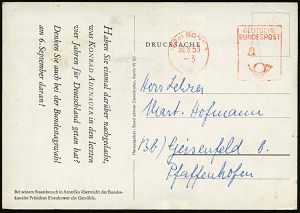 Haben Sie einmal darüber nachgedacht,
was KONRAD ADENAUER in den letzten
vier Jahren für Deutschland getan hat?
Denken Sie auch bei der Bundestagswahl
am 6. September daran!
Bei seinem Staatsbesuch in Amerika überreicht der Bundes-
kanzler Präsident Eisenhower ein Gemälde.
DRUCKSACHE
BONN
DEUTSCHE
BUNDESPOST
Herrn Lehrer
Kart. Hofmann
13b) Geisenfeld b/
Pfaffenhofen